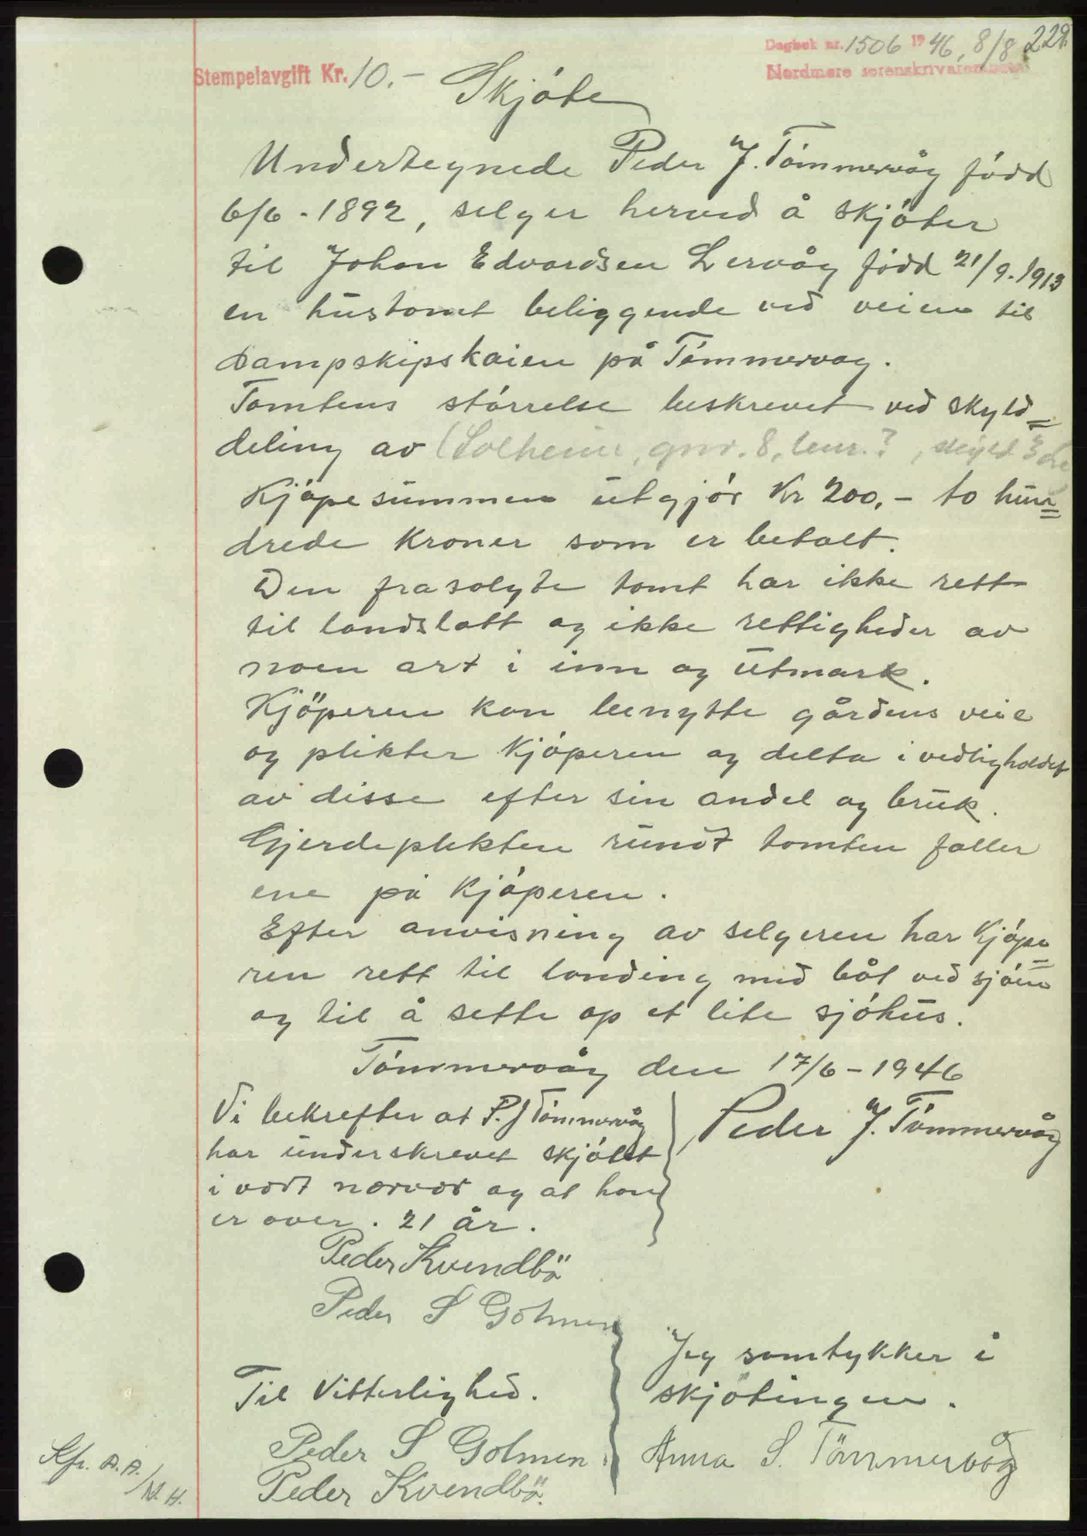 Dagbok nr. 1506 1946, 8/8 229.
Nordmøre sorenskriverembete
Stempelavgift Kr. 10.-
Skjöte
Undertegnede Peder J. Tömmervåg född
6/6 - 1892, selger herved å skjöter
til Johan Edvardsen Lervåg född 21/9. 1913
en hustomt beliggende ved veien til
Dampskipskaien på Tömmervåg.
Tomtens störrelse beskrevet ved skyld=
deling av (Solheim, gnr. 8, bnr. ?, skyld 3 öre
Kjöpesummen utgjör Kr 200,- to hun=
drede Kroner som er betalt.
Den frasolgte tomt har ikke rett
til landslott og ikke rettigheder av
noen art i inn og utmark.
Kjöperen kan benytte gårdens veie
og plikter Kjöperen og delta i vedligholdet
av disse efter sin andel og bruk.
Gjerdeplikten rundt tomten faller
ene på Kjöperen.
Efter anvisning av selgeren har Kjöpe=
ren rett til landing med båt ved sjöen
og til å sette op et lite sjöhus.
Tömmervåg den 17/6 - 1946
Vi bekrefter at P. J Tömmervåg
har underskrevet skjötet
i vort nærvær og at han
er over. 21 år.
Peder J. Tömmervåg
Peder Kvendbö
Peder S Golmen
Til Vitterlighed.
Peder S Golmen.
Peder Kvendbö.
Jeg samtykker i
skjötingen.
Anna S. Tömmervåg
Kfr. A.A.
/N.H.